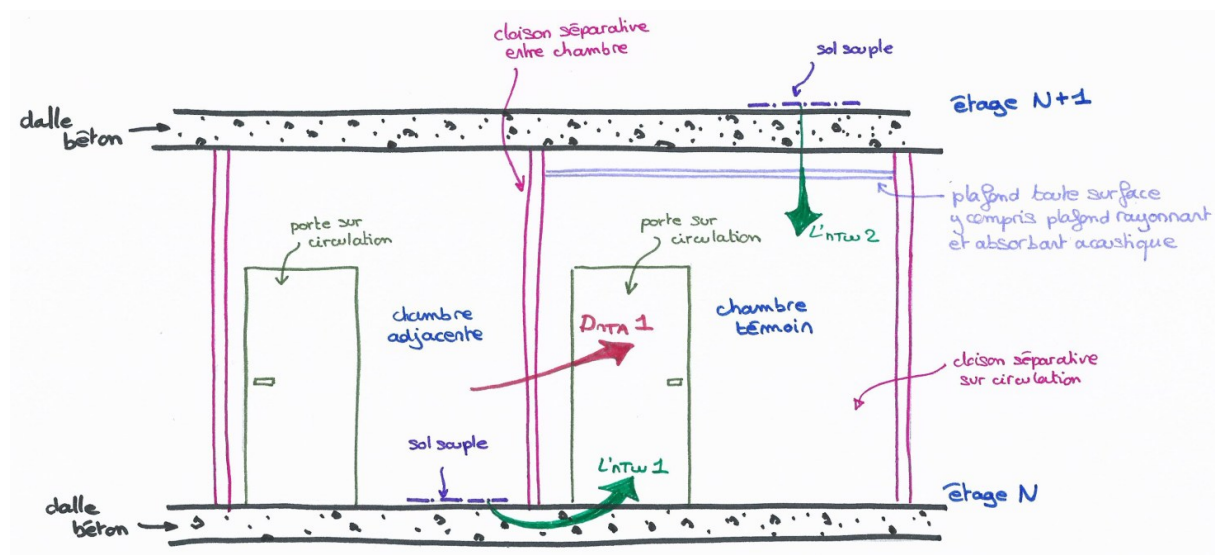 cloison séparative
entre chambre
sol souple
étage N+1
dalle
béton
plafond toute surface
y compris plafond rayonnant
et absorbant acoustique
porte sur
circulation
porte sur
circulation
L'nTW 2
chambre
adjacente
chambre
témoin
DnTA 1
cloison séparative
sur circulation
sol souple
L'nTW 1
étage N
dalle
béton